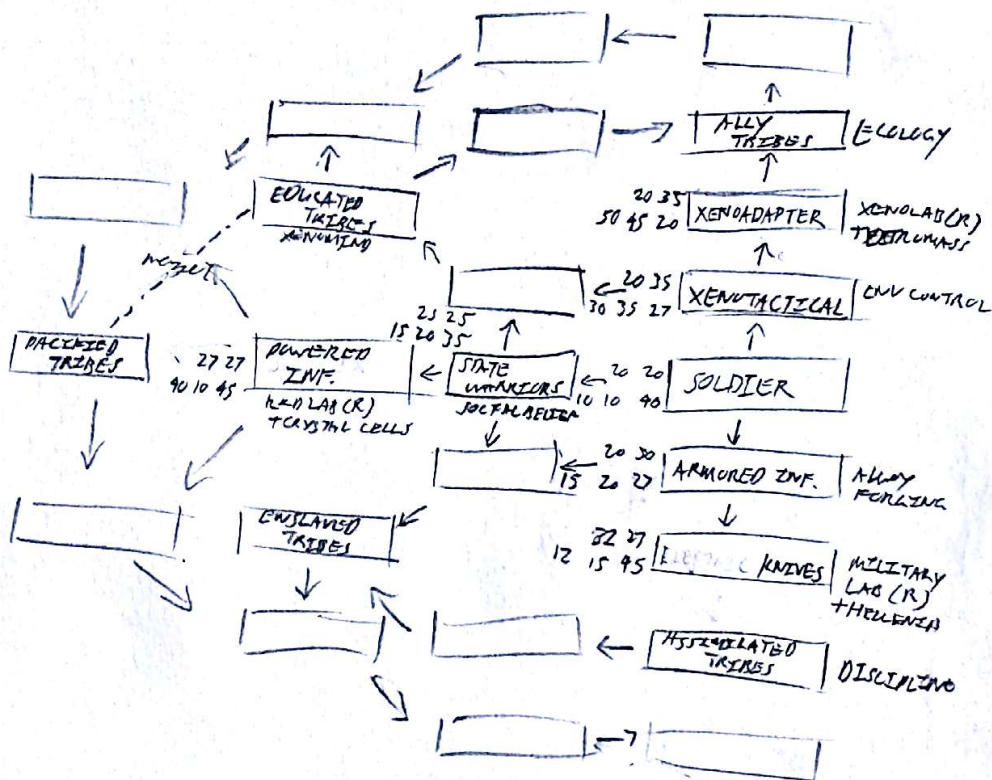 ALLY
TRIBES
ECOLOGY
20 35
50 45 20
XENOADAPTER
XENOLAB(R)
EDUCATED
TRIBES
XENOMIND
20 35
30 35 27
XENOTACTICAL
ENV CONTROL
25 25
15 20 35
PACIFIED
TRIBES
27 27
40 10 45
POWERED
INF.
LAB(R)
+CRYSTAL CELLS
STATE
WARRIORS
20 20
10 10 40
SOLDIER
20 30
15 20 27
ARMORED INF.
ALLOY
FORGING
ENSLAVED
TRIBES
32 27
12 15 45
KNIVES
MILITARY
LAB (R)
ASSIMILATED
TRIBES
DISCIPLINE